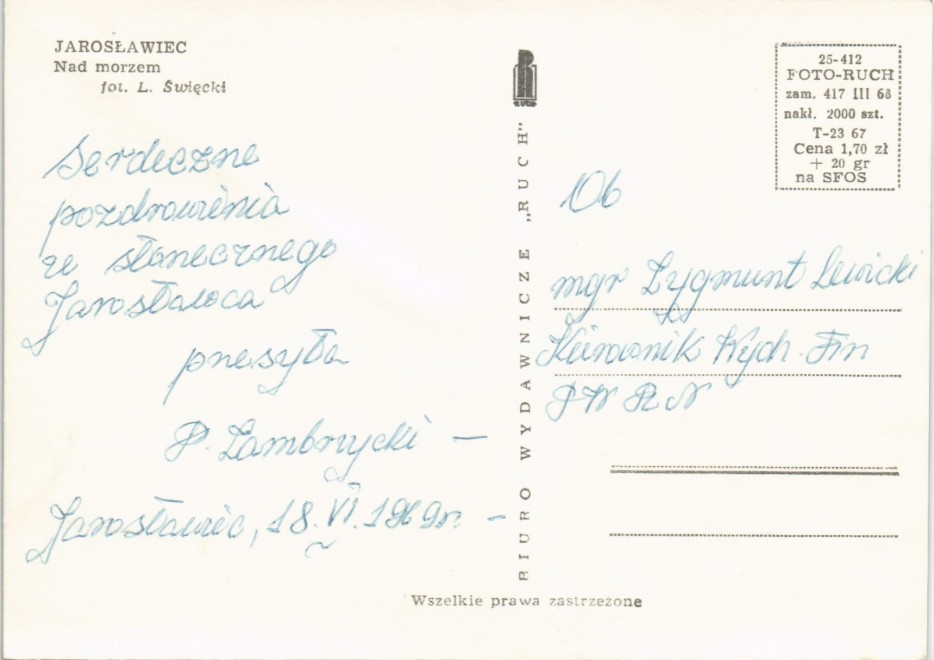 JAROSŁAWIEC
Nad morzem
fot. L. Święcki
Serdeczne
pozdrowienia
ze słonecznego
Jarosławca
przesyła
P. Zambrzycki –
Jarosławiec, 18.VI.1969r. –
BIURO WYDAWNICZE „RUCH"
RUCH
25-412
FOTO-RUCH
zam. 417 III 68
nakł. 2000 szt.
T-23 67
Cena 1,70 zł
+ 20 gr
na SFOS
Ob
mgr Zygmunt Lewicki
Kierownik Wych. Fin
PWRN
Wszelkie prawa zastrzeżone